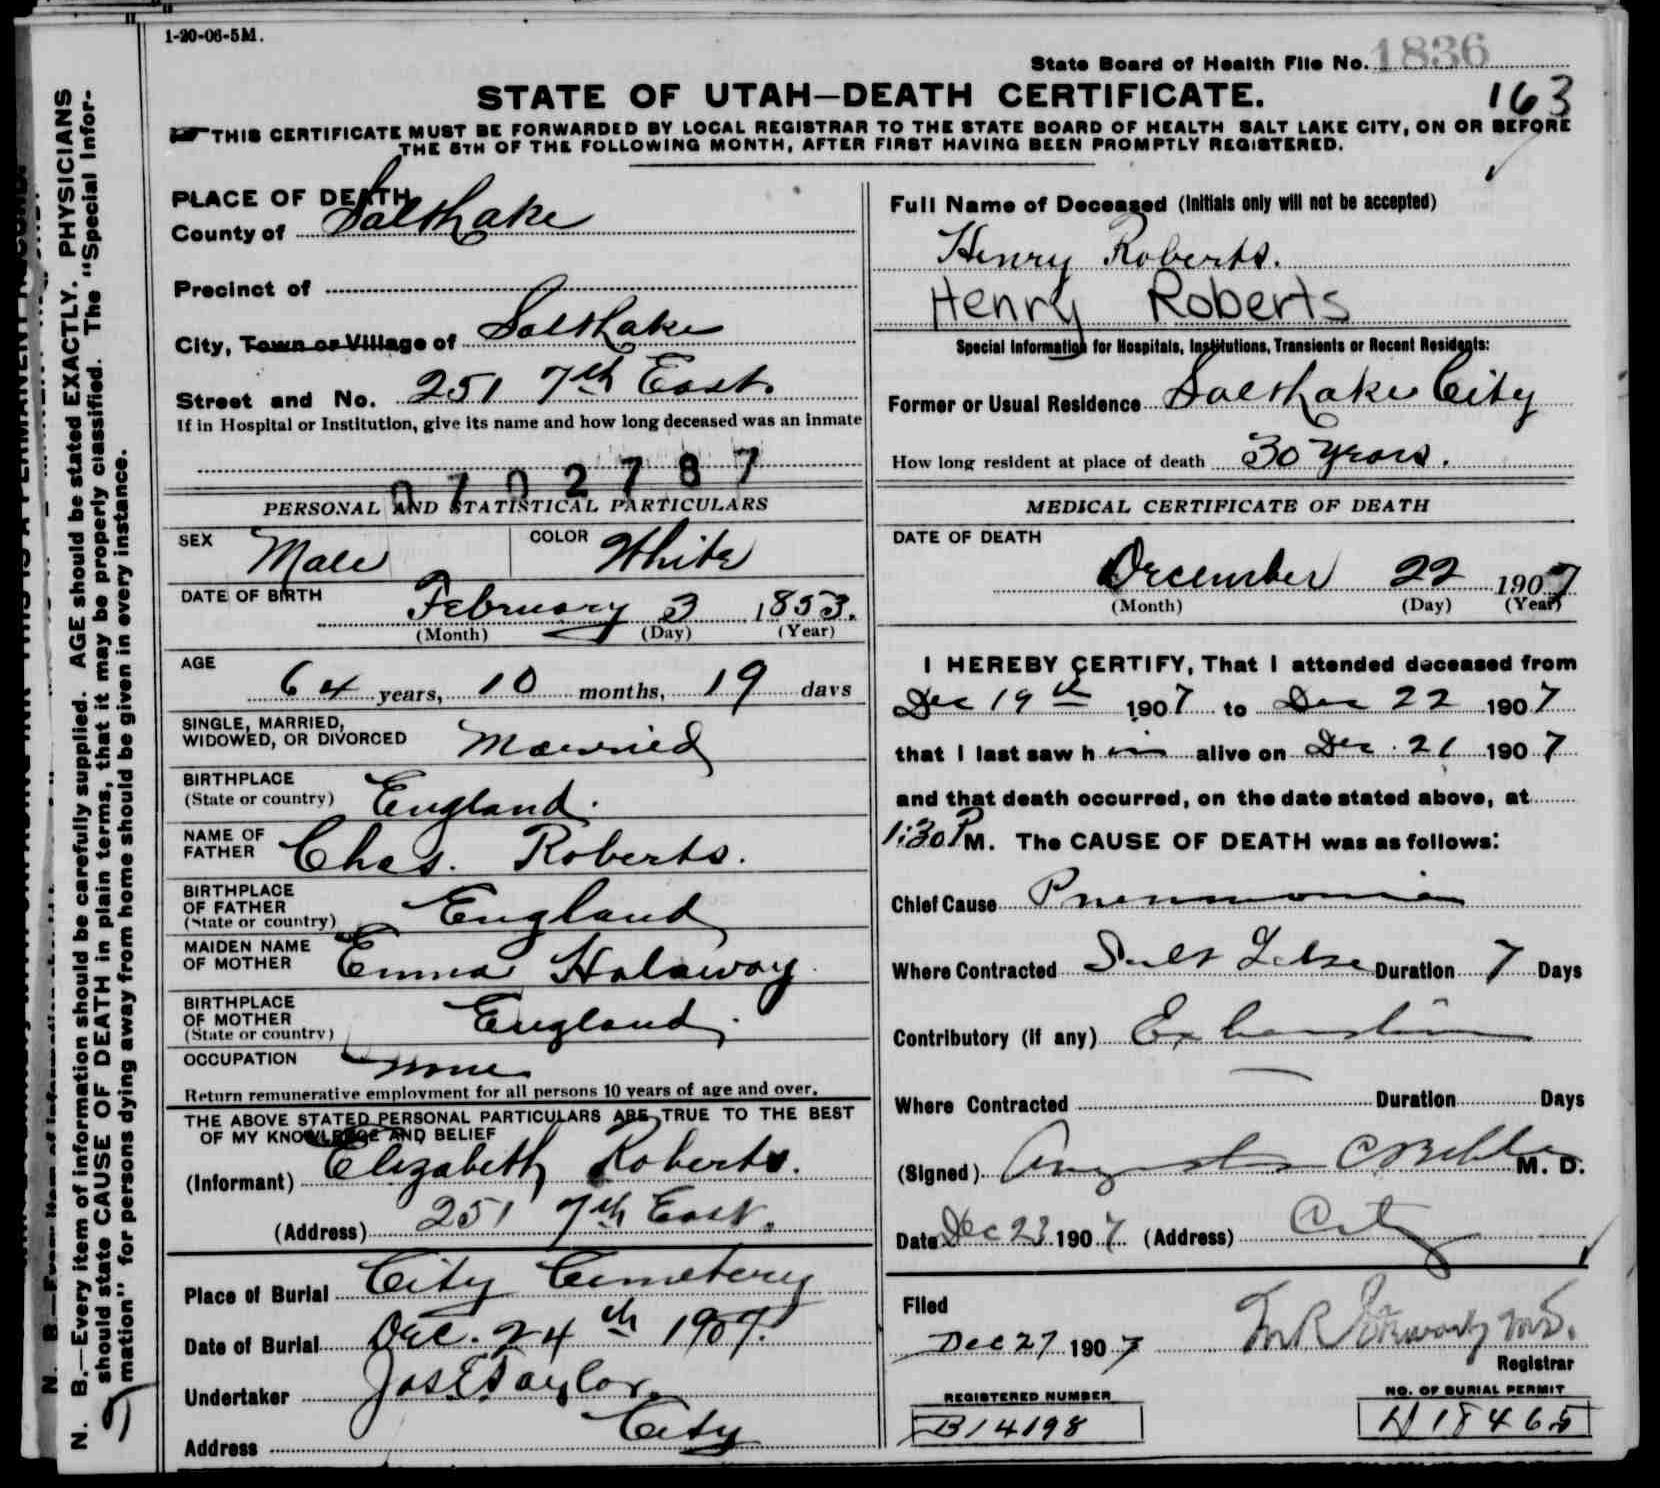 1-20-06-5M.
State Board of Health File No. 1836
STATE OF UTAH—DEATH CERTIFICATE.
163
THIS CERTIFICATE MUST BE FORWARDED BY LOCAL REGISTRAR TO THE STATE BOARD OF HEALTH SALT LAKE CITY, ON OR BEFORE
THE 5TH OF THE FOLLOWING MONTH, AFTER FIRST HAVING BEEN PROMPTLY REGISTERED.
N. B.—Every item of information should be carefully supplied. AGE should be stated EXACTLY. PHYSICIANS
should state CAUSE OF DEATH in plain terms, that it may be properly classified. The "Special Infor-
mation" for persons dying away from home should be given in every instance.
PLACE OF DEATH
County of Salt Lake
Precinct of
City, Town or Village of Salt Lake
Street and No. 251 7th East.
If in Hospital or Institution, give its name and how long deceased was an inmate
0702787
PERSONAL AND STATISTICAL PARTICULARS
SEX Male COLOR White
DATE OF BIRTH February 3 1853.
(Month) (Day) (Year)
AGE 64 years, 10 months, 19 days
SINGLE, MARRIED,
WIDOWED, OR DIVORCED Married
BIRTHPLACE
(State or country) England.
NAME OF
FATHER Chas. Roberts.
BIRTHPLACE
OF FATHER
(State or country) England
MAIDEN NAME
OF MOTHER Emma Holaway
BIRTHPLACE
OF MOTHER
(State or country) England.
OCCUPATION None
Return remunerative employment for all persons 10 years of age and over.
THE ABOVE STATED PERSONAL PARTICULARS ARE TRUE TO THE BEST
OF MY KNOWLEDGE AND BELIEF
(Informant) Elizabeth Roberts.
(Address) 251 7th East.
Place of Burial City Cemetery
Date of Burial Dec. 24th 1907.
Undertaker Jos E Taylor
Address City
Full Name of Deceased (Initials only will not be accepted)
Henry Roberts.
Henry Roberts
Special Information for Hospitals, Institutions, Transients or Recent Residents:
Former or Usual Residence Salt Lake City
How long resident at place of death 30 years.
MEDICAL CERTIFICATE OF DEATH
DATE OF DEATH
December 22 1907
(Month) (Day) (Year)
I HEREBY CERTIFY, That I attended deceased from
Dec 19th 1907 to Dec 22 1907
that I last saw him alive on Dec. 21 1907
and that death occurred, on the date stated above, at
1:30 P M. The CAUSE OF DEATH was as follows:
Chief Cause Pneumonia
Where Contracted Salt Lake Duration 7 Days
Contributory (if any) Exhaustion
Where Contracted Duration Days
(Signed) M. D.
Date Dec 23 1907 (Address) City
Filed
Dec 27 1907
Registrar
REGISTERED NUMBER
B14198
NO. OF BURIAL PERMIT
H 18465